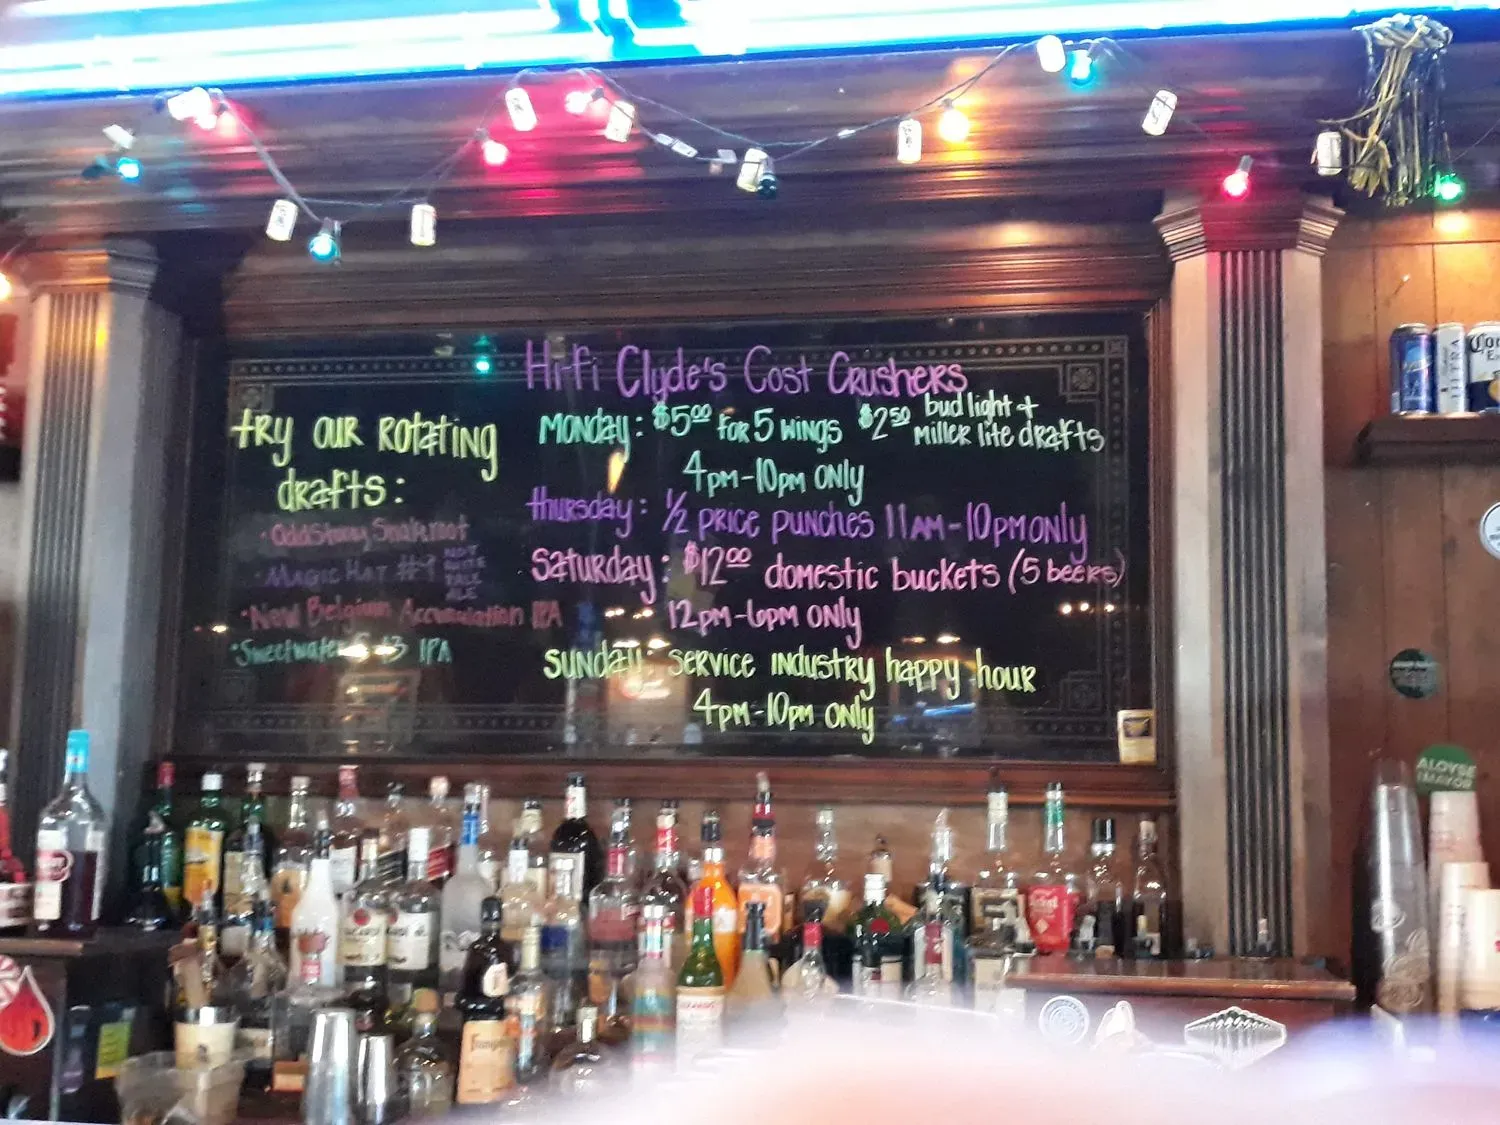 Hi-Fi Clyde's Cost Crushers
try our rotating
drafts:
Magic Hat #9 Not
Quite
Pale
Ale
New Belgium Accumulation IPA
Sweetwater IPA
Monday: $5.00 for 5 wings $2.50 bud light +
Miller lite drafts
4pm-10pm only
thursday: 1/2 price punches 11am-10pm only
Saturday: $12.00 domestic buckets (5 beers)
12pm-6pm only
Sunday: service industry happy hour
4pm-10pm only
ULTRA